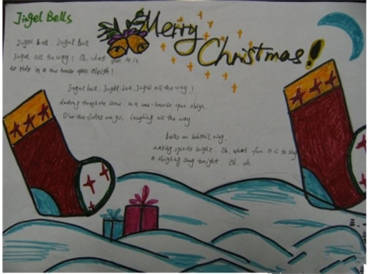 Jingel Bells
Merry
Christmas!
Jingel bell, Jingel bell
Jingel all the way! Oh what fun it is
to ride in a one horse open sleigh!
Jingel bell, Jingel bell, Jingel all the way!
dashing through the snow in a one-horse open sleigh.
O'er the fields we go. Laughing all the way
bells on bobtail ring
making spirits bright. Oh, what fun it is to
a sleighing song tonight. Oh, oh